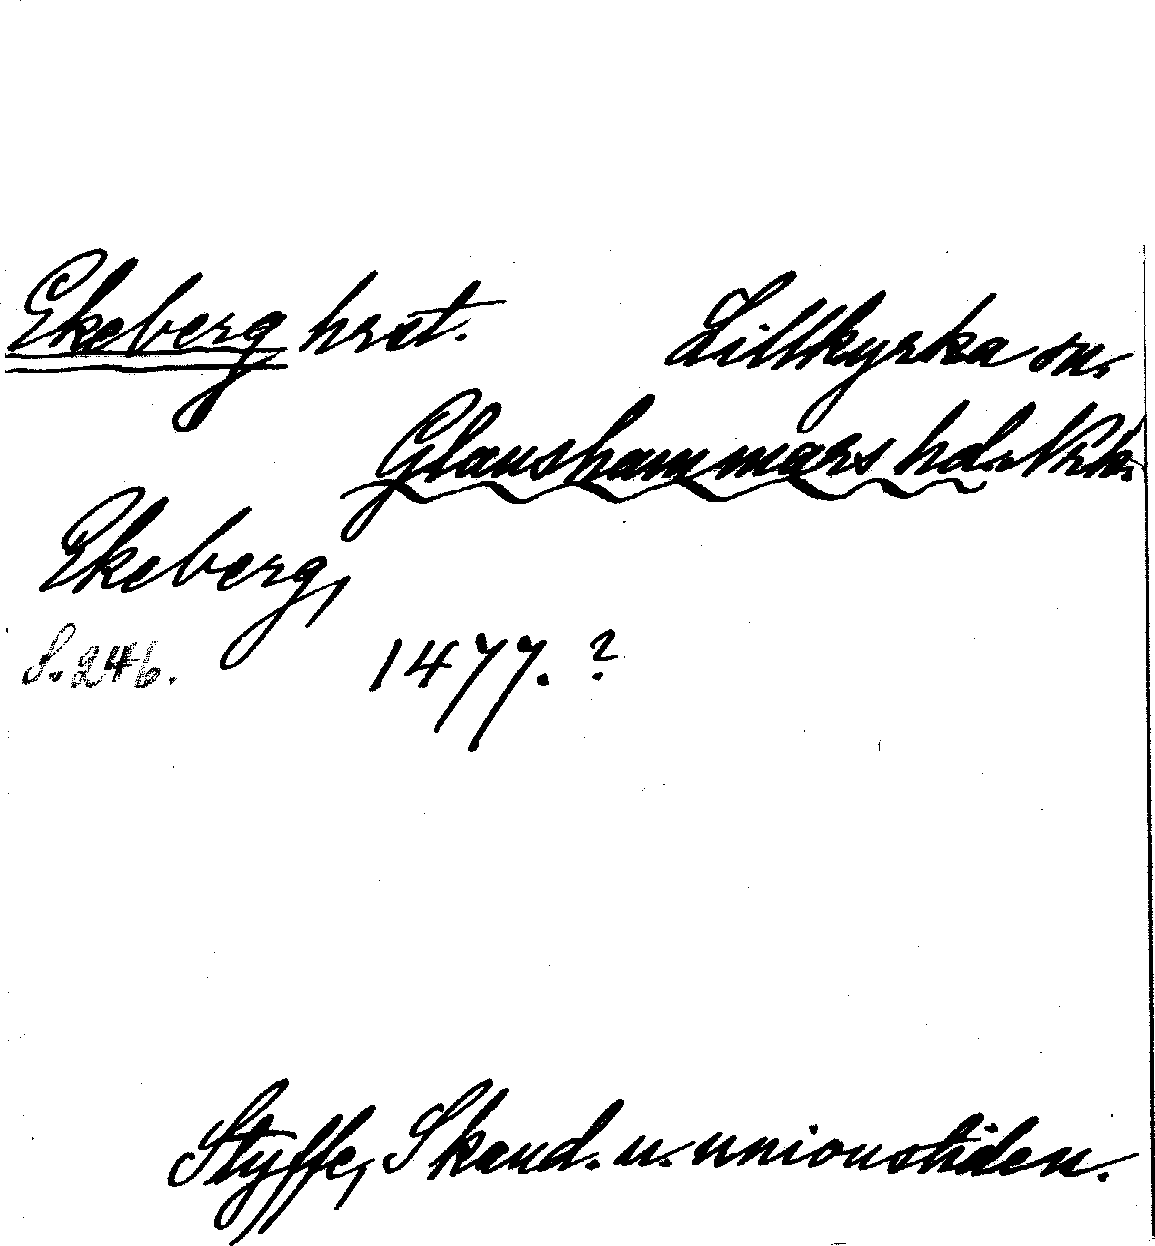 Ekeberg hrst. Lillkyrka sn.
Glanshammars hd. Nrk.
Ekeberg,
S. 246. 1477. ?
Styffe, Skand. u. unionstiden.